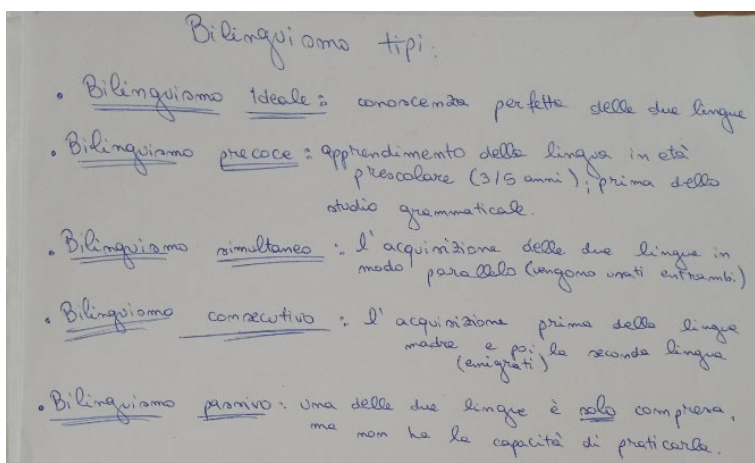 Bilinguismo tipi:
• Bilinguismo Ideale: conoscenza perfetta delle due lingue
• Bilinguismo precoce: apprendimento della lingua in età
prescolare (3/5 anni); prima dello
studio grammaticale.
• Bilinguismo simultaneo: l'acquisizione delle due lingue in
modo parallelo (vengono usati entrambi)
• Bilinguismo consecutivo: l'acquisizione prima della lingua
madre e poi la seconda lingua
(emigrati)
• Bilinguismo passivo: una delle due lingue è solo compresa,
ma non ha la capacità di praticarla.